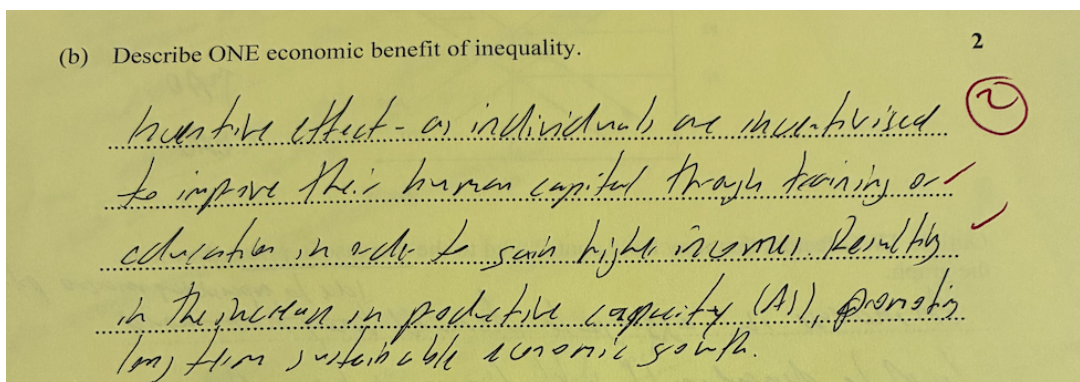 (b) Describe ONE economic benefit of inequality. 2
Incentive effect - as individuals are incentivised 2
to improve their human capital through training or
education in order to gain higher incomes. Resulting
in the increase in productive capacity (AS), promoting
long term sustainable economic growth.